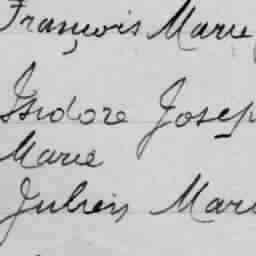 François Marie
Isidore Josep
Marie
Julien Mari